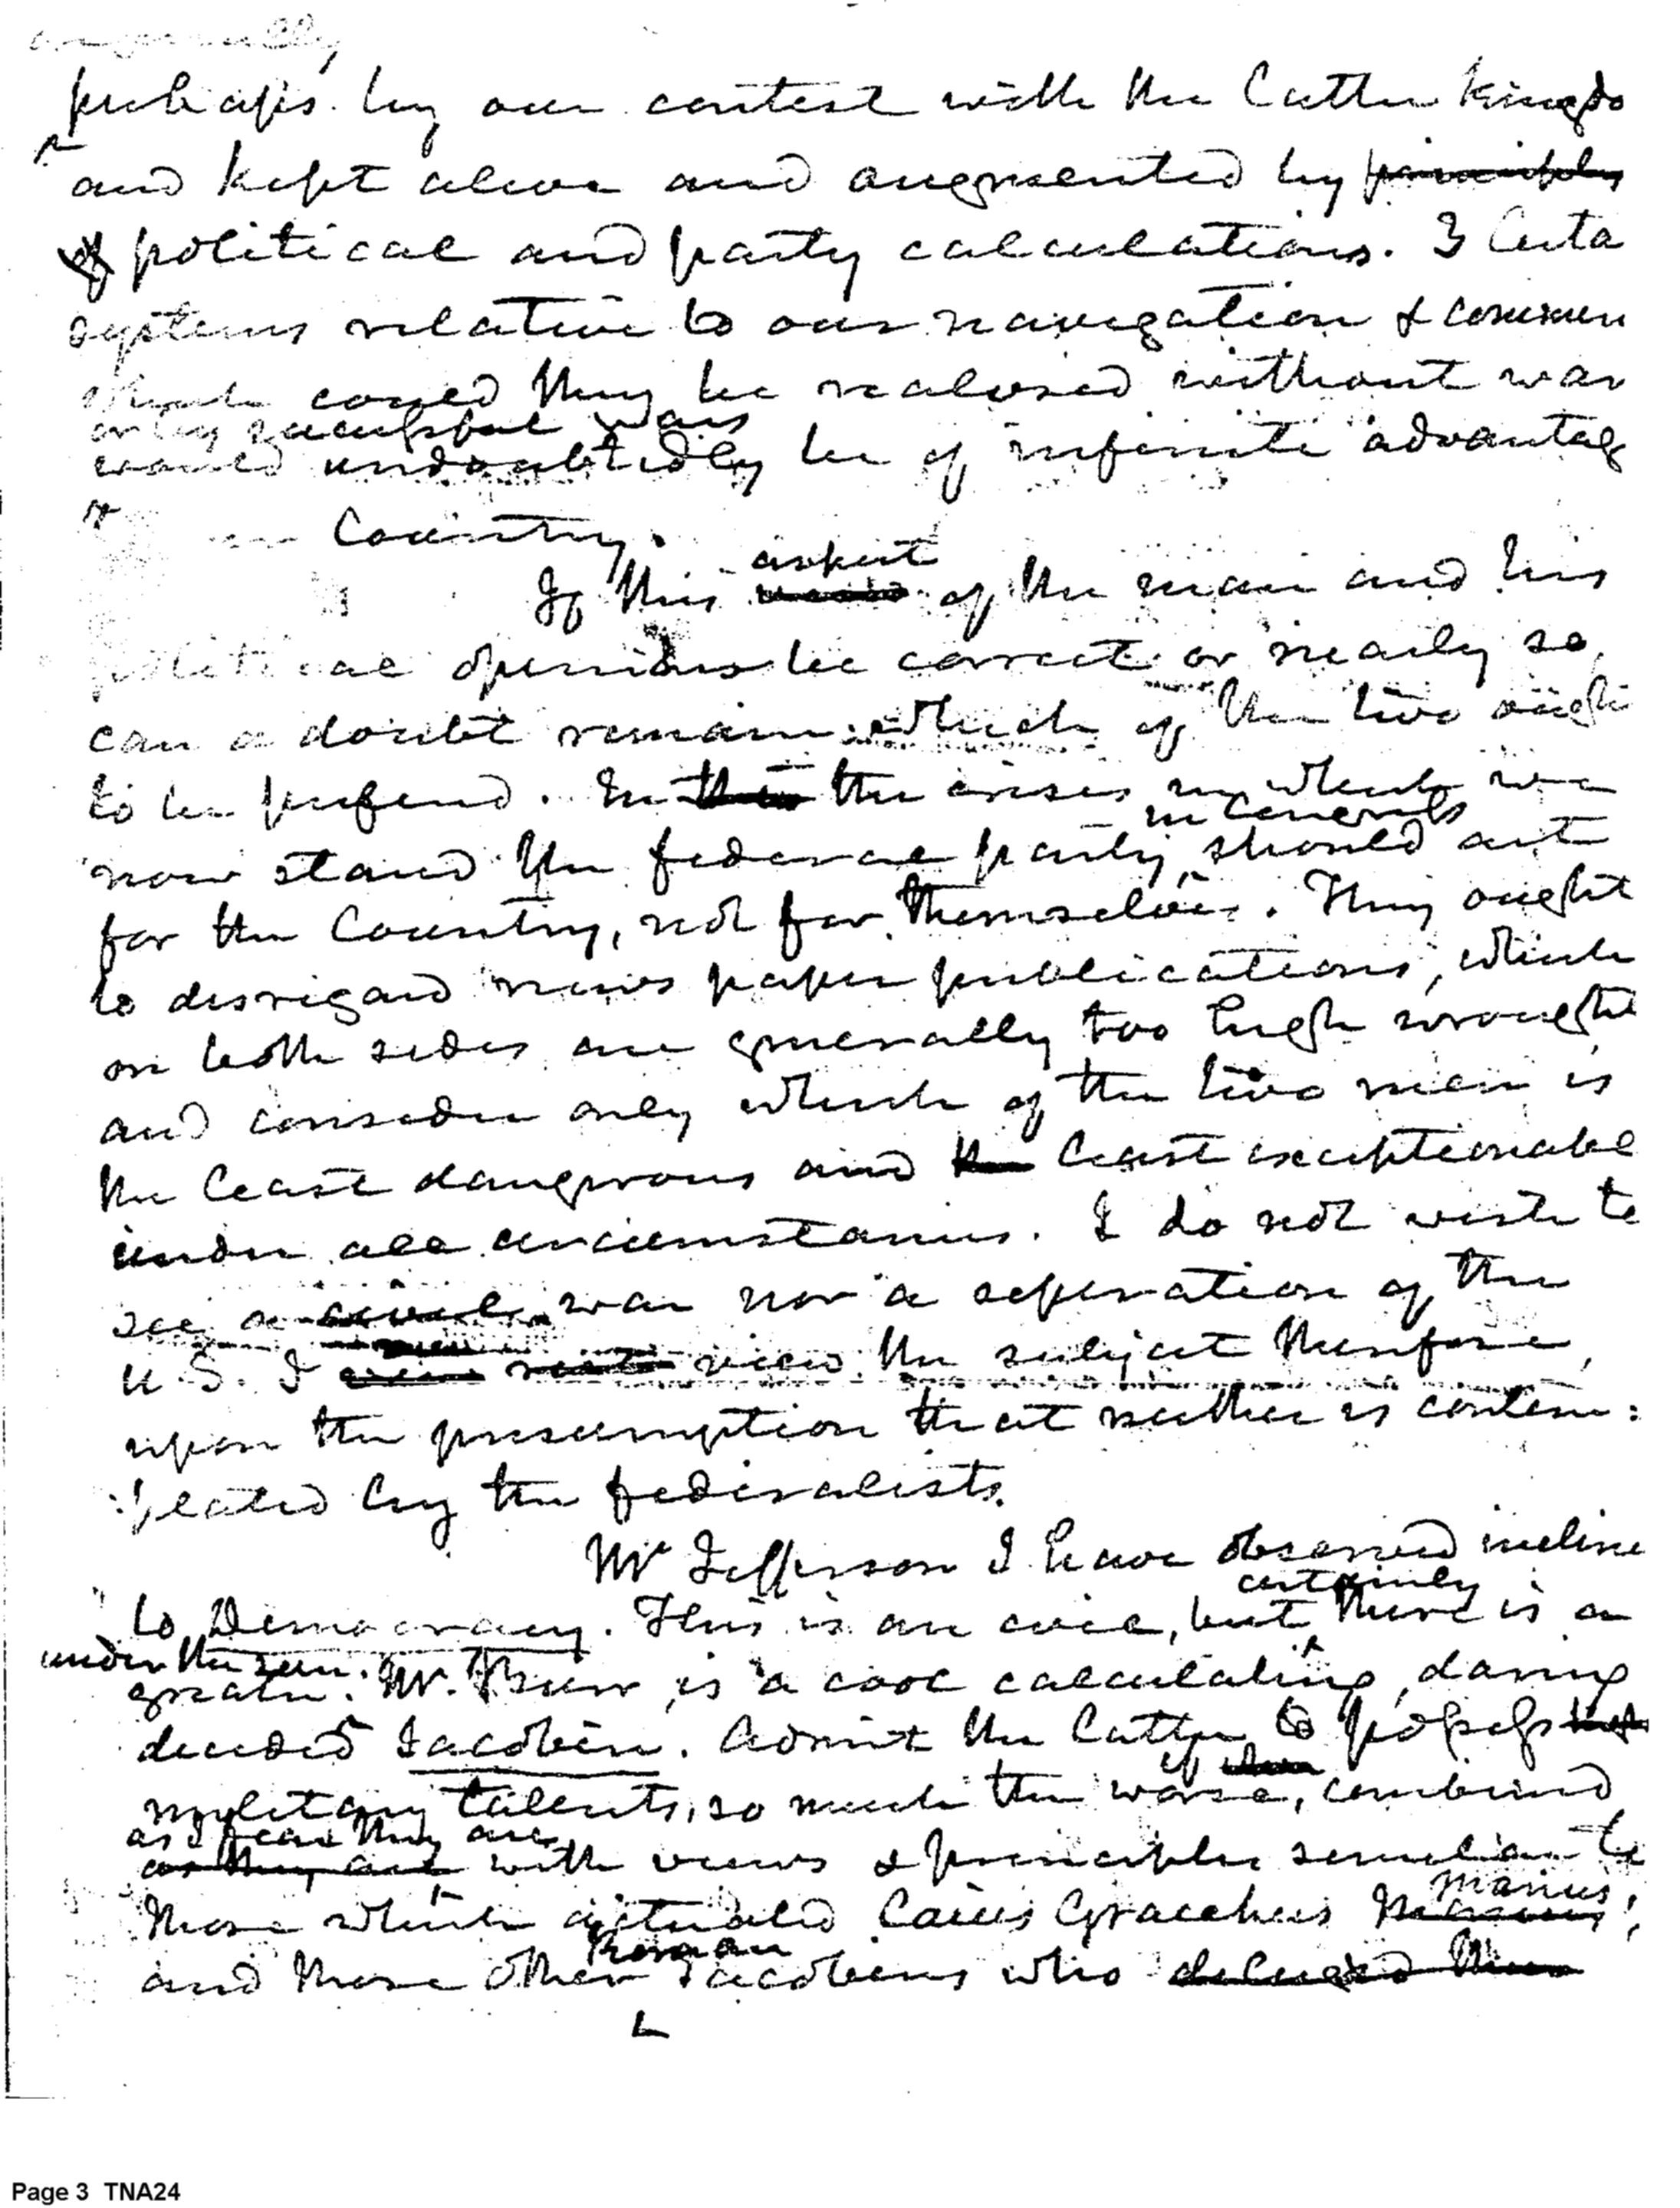 originally
perhaps by our contest with the latter Kingdo
and kept alive and augmented by principles
of political and party calculations. 3 Certa
systems relative to our navigation & commer
which could they be realised without war
or by successful wars
would undoubtedly be of infinite advantag
to our Country.
aspect
If this of the man and his
political opinions be correct or nearly so,
can a doubt remain which of the two ough
to be prefered. In this the crises in which we
in Congress
now stand the federal party should act
for the Country, not for themselves. They ought
to disregard news paper publications, which
on both sides are generally too high wrought
and consider only which of the two men is
the least dangerous and the least exceptionable
under all circumstances. I do not wish to
see a civil war nor a seperation of the
U.S. I view the subject therefore,
upon the presumption that neither is contem:
:plated by the federalists.
Mr Jefferson I have observed incline
certainly
to Democracy. This is an evil, but there is a
under the sun.
greater. Mr. Burr is a cool calculating, daring
decided Jacobin. Admit the latter to possess
if
military talents, so much the worse, combined
as I fear they are
as they are with views & principles similar to
Marius,
those which actuated Caius Gracchus Marius,
Roman
and those other Jacobins who deluged